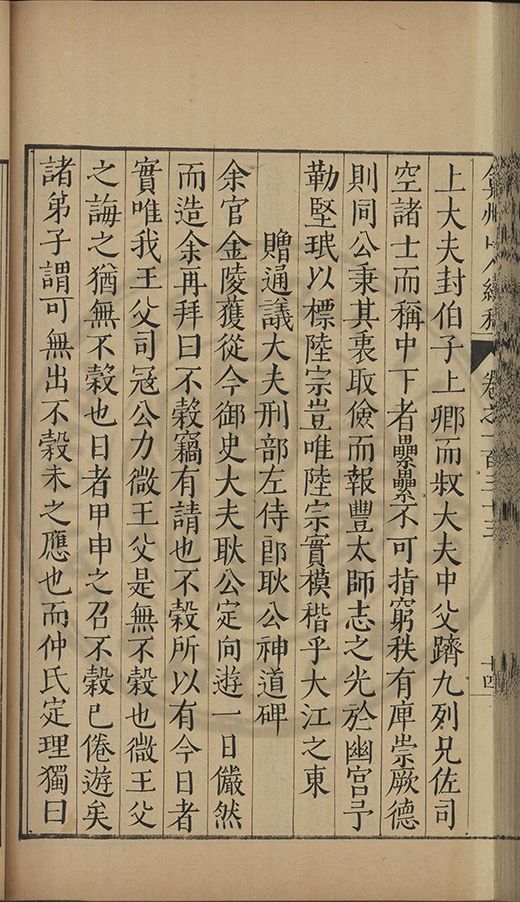 弇州山人續稿 卷之一百三十三 十四
上大夫封伯子上卿而叔大夫中父躋九列兄佐司
空諸士而稱中下者纍纍不可指窮秩有庳崇厥德
則同公秉其衷取儉而報豐太師志之光於幽宮予
勒堅珉以標陸宗豈唯陸宗實模楷乎大江之東
贈通議大夫刑部左侍郎耿公神道碑
余官金陵獲從今御史大夫耿公定向遊一日儼然
而造余再拜曰不穀竊有請也不穀所以有今日者
實唯我王父司冦公力微王父是無不穀也微王父
之誨之猶無不穀也日者甲申之召不穀已倦遊矣
諸弟子謂可無出不穀未之應也而仲氏定理獨曰